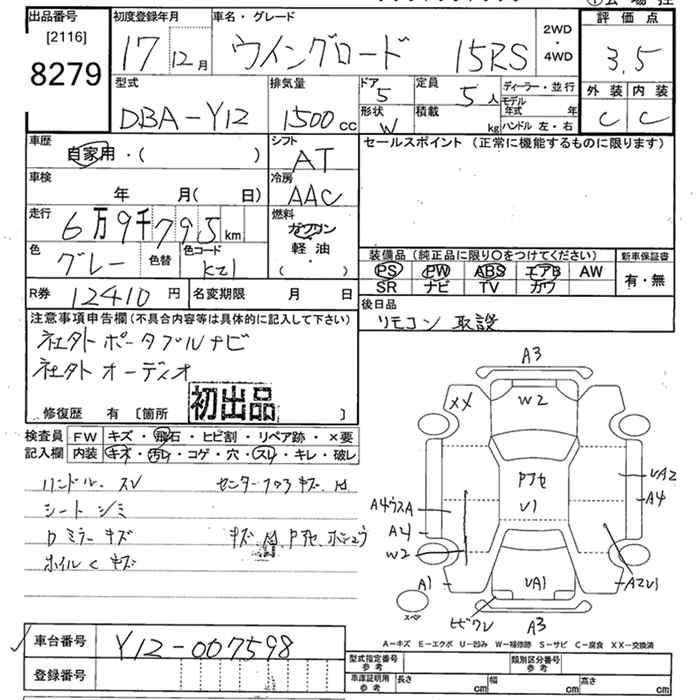 出品番号
[2116]
8279
初度登録年月
17 12月
車名・グレード
ウイングロード 15RS
2WD
・
4WD
評価点
3.5
外装 内装
C C
型式
DBA-Y12
排気量
1500cc
ドア
5
形状
W
定員
5人
積載
kg
ディーラー・並行
モデル年式 年
ハンドル 左・右
車歴
自家用・( )
シフト
AT
セールスポイント(正常に機能するものに限ります)
車検
年 月(日)
冷房
AAC
走行
6万9千795km
燃料
ガソリン
軽油
・( )
色
グレー
色替
色コード
KZ1
装備品(純正品に限り○をつけてください)
PS PW ABS エアB AW
SR ナビ TV ガワ
新車保証書
有・無
R券
12410円
名変期限 月 日
後日品
リモコン 取説
注意事項申告欄(不具合内容等は具体的に記入して下さい)
社外ポータブルナビ
社外オーディオ
初出品
修復歴 有[箇所 ]
検査員
記入欄
FW キズ・飛石・ヒビ割・リペア跡・×要
内装 キズ・汚レ・コゲ・穴・スレ・キレ・破レ
ハンドル スレ
シート シミ
ミラー キズ
ホイル キズ
A3
XX
W2
Pアセ
V1
UA2
A4
A4ウスA
A4
W2
A1
UA1
A2V1
スペア
ヒビワレ
A3
車台番号
Y12-007598
登録番号
A-キズ E-エクボ U-凹み W-補修跡 S-サビ C-腐食 XX-交換済
型式指定番号
参考
類別区分番号
参考
車庫証明用
参考
長さ cm
幅 cm
高さ cm